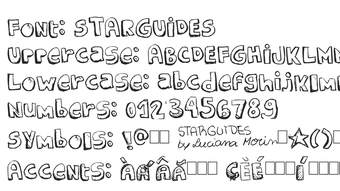 Font: STARGUiDES
Uppercase: ABCDEFGHiJKLMN
Lowercase: abcdefghijklm
Numbers: 0123456789
Symbols: !@□□ STARGUIDES by Luciana Morin □☆()□
Accents: ÀÁÂÃ□□□ ÇÈÉ□□□Í